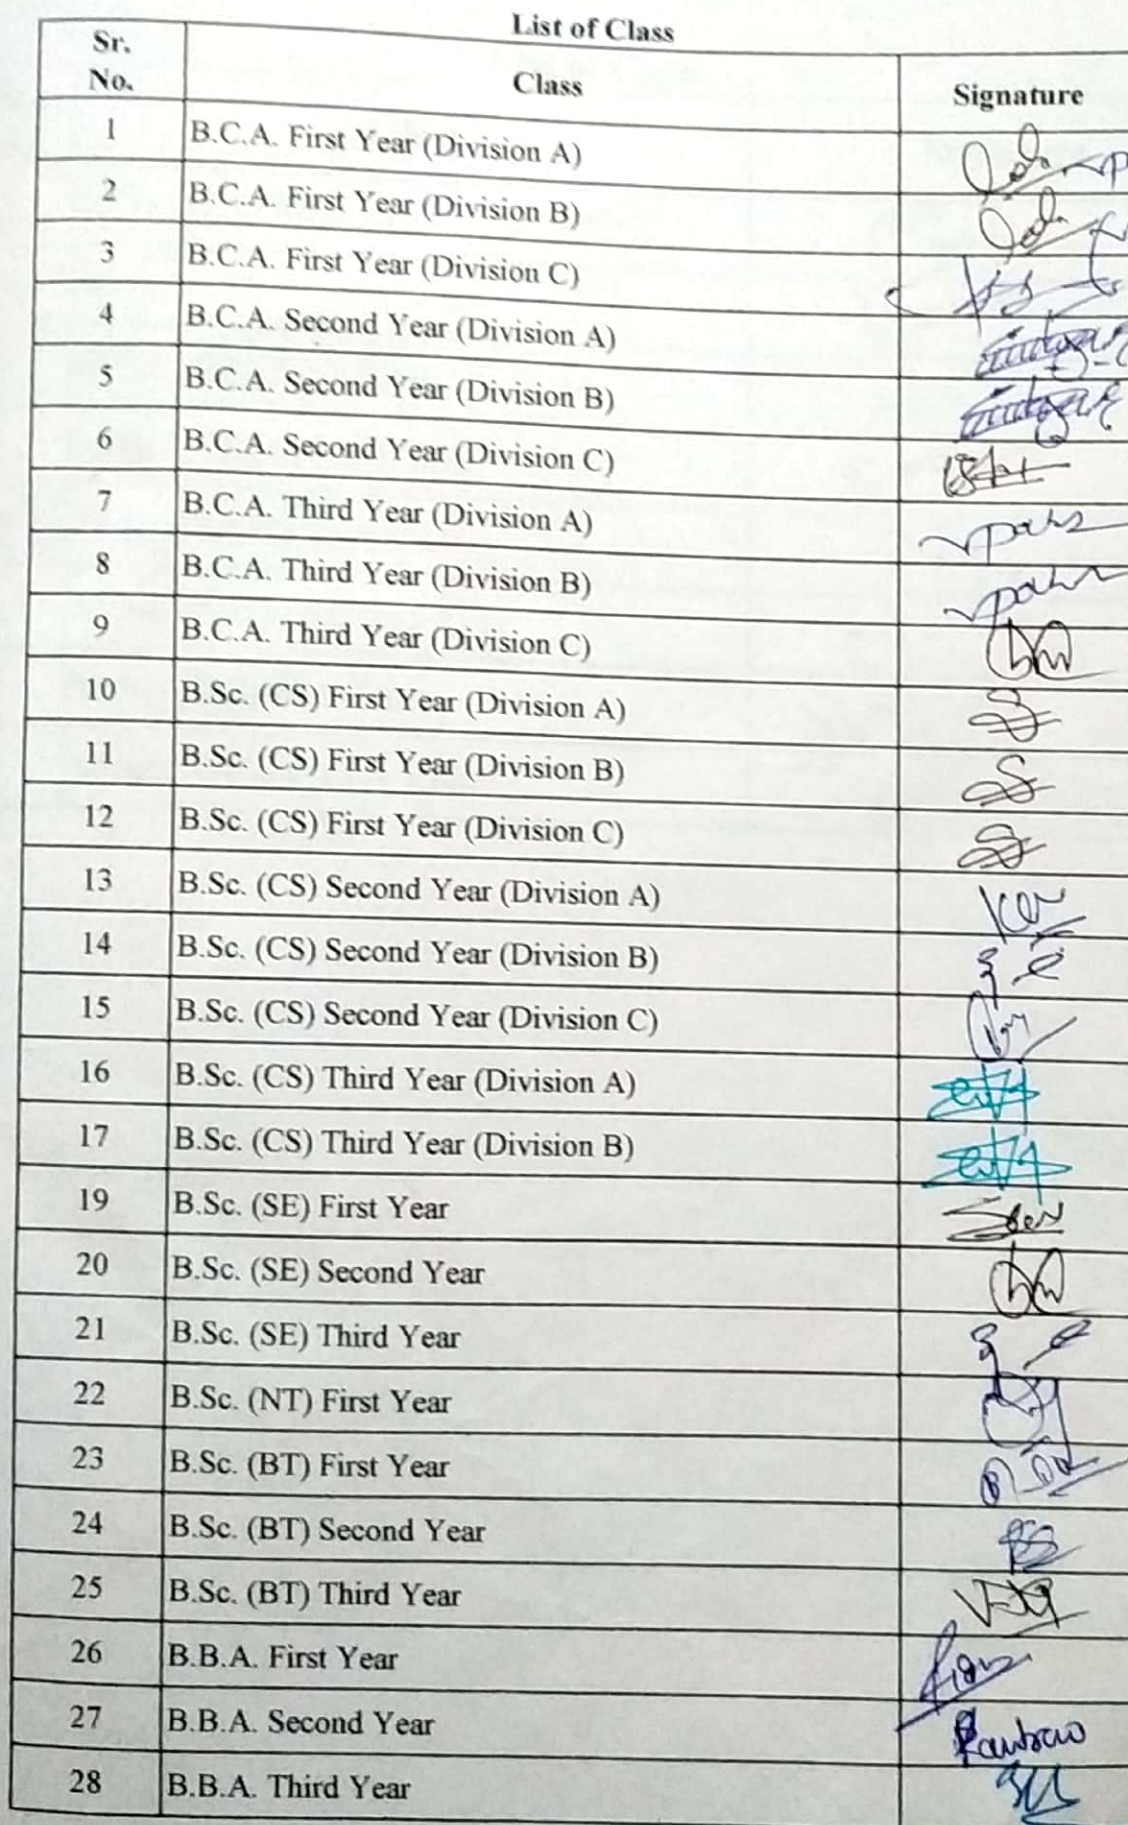 List of Class
Sr. No. Class Signature
1 B.C.A. First Year (Division A)
2 B.C.A. First Year (Division B)
3 B.C.A. First Year (Division C)
4 B.C.A. Second Year (Division A)
5 B.C.A. Second Year (Division B)
6 B.C.A. Second Year (Division C)
7 B.C.A. Third Year (Division A)
8 B.C.A. Third Year (Division B)
9 B.C.A. Third Year (Division C)
10 B.Sc. (CS) First Year (Division A)
11 B.Sc. (CS) First Year (Division B)
12 B.Sc. (CS) First Year (Division C)
13 B.Sc. (CS) Second Year (Division A)
14 B.Sc. (CS) Second Year (Division B)
15 B.Sc. (CS) Second Year (Division C)
16 B.Sc. (CS) Third Year (Division A)
17 B.Sc. (CS) Third Year (Division B)
19 B.Sc. (SE) First Year
20 B.Sc. (SE) Second Year
21 B.Sc. (SE) Third Year
22 B.Sc. (NT) First Year
23 B.Sc. (BT) First Year
24 B.Sc. (BT) Second Year
25 B.Sc. (BT) Third Year
26 B.B.A. First Year
27 B.B.A. Second Year
28 B.B.A. Third Year